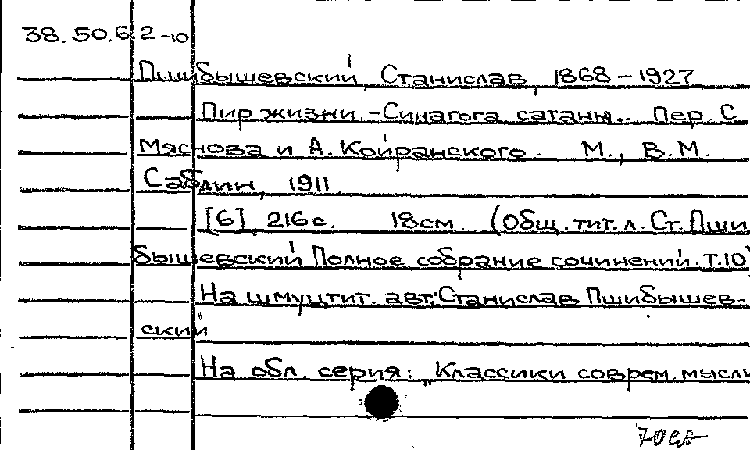 38.50.62-10
Пшибышевский, Станислав, 1868-1927
Пир жизни. - Синагога сатаны. Пер. С.
Мяснова и А. Койранского. М., В.М.
Саблин, 1911.
[6], 216с. 18см. (Общ. тит. л. Ст. Пши
бышевский Полное собрание сочинений. т.10)
На шмуцтит. авт: Станислав Пшибышев-
ский
На обл. серия: "Классики соврем. мысли